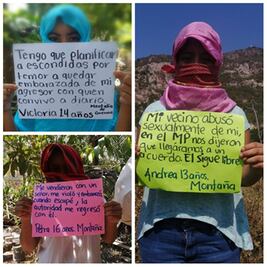 Tengo que planificar
a escondidas por
temor a quedar
embarazada de mi
agresor con quien
convivo a diario.
Victoria 14 años
Montaña
de Guerrero
Me vendieron con un
señor, me violó y embarazó,
cuando escapé, la
autoridad me regresó
con él.
Petra 16 años Montaña
Mi vecino abusó
sexualmente de mi,
en el MP nos dijeron
que llegáramos a un
acuerdo. El sigue libre
Andrea 13 años.
Montaña